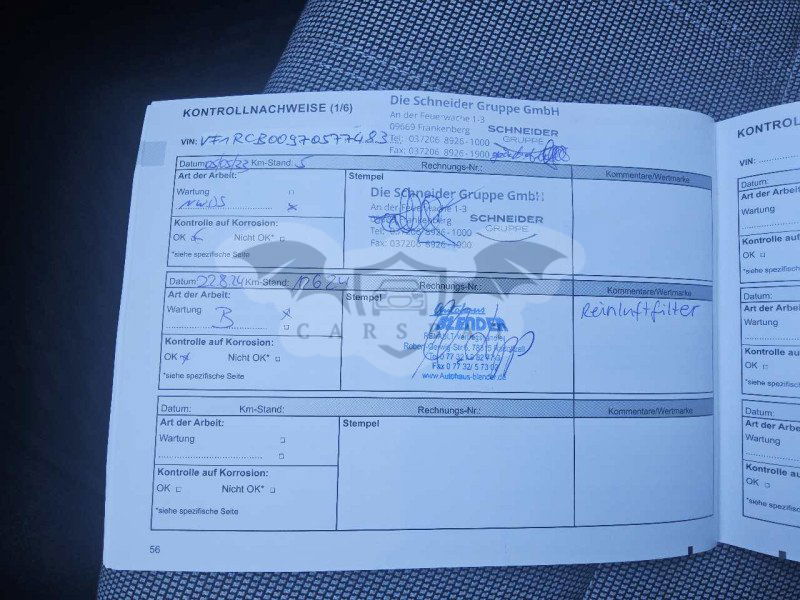 KONTROLLNACHWEISE (1/6)
Die Schneider Gruppe GmbH
An der Feuerwache 1-3
09669 Frankenberg
Tel: 037206 8926-1000
Fax: 037206 8926-1900
SCHNEIDER
GRUPPE
VIN: VF1RCB00970577483
Datum: 05/05/23 Km-Stand: 5 Rechnungs-Nr.: Kommentare/Wertmarke
Art der Arbeit: Stempel
Wartung
NWDS
Die Schneider Gruppe GmbH
An der Feuerwache 1-3
Frankenberg
Tel: 037206 8926-1000
Fax: 037206 8926-1900
SCHNEIDER
GRUPPE
Kontrolle auf Korrosion:
OK Nicht OK*
*siehe spezifische Seite
Datum: 22.8.24 Km-Stand: 12624 Rechnungs-Nr.: Kommentare/Wertmarke
Art der Arbeit: Stempel
Wartung
B
Autohaus
BLENDER
Fax 0 77 32/ 5 73 02
www.Autohaus-blender.de
Reinluftfilter
Kontrolle auf Korrosion:
OK Nicht OK*
*siehe spezifische Seite
Datum: Km-Stand: Rechnungs-Nr.: Kommentare/Wertmarke
Art der Arbeit: Stempel
Wartung
Kontrolle auf Korrosion:
OK Nicht OK*
*siehe spezifische Seite
56
KONTROLL
VIN:
Datum:
Art der Arbei
Wartung
Kontrolle au
OK
*siehe spezifisc
Datum:
Art der Arbe
Wartung
Kontrolle au
OK
*siehe spezifisc
Datum:
Art der Arb
Wartung
Kontrolle a
OK
*siehe spezifis